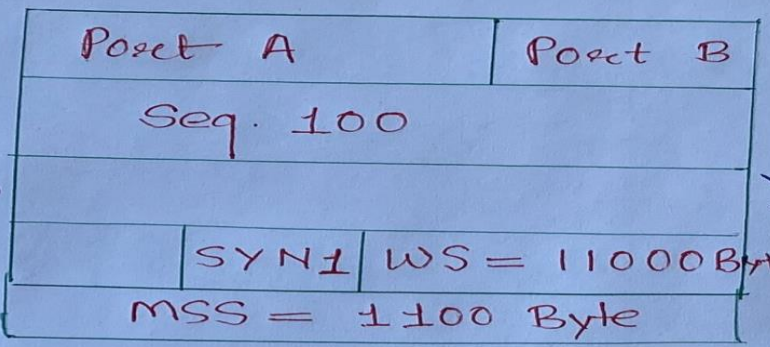 Port A Port B
Seq. 100
SYN1 WS = 11000 Byt
MSS = 1100 Byte